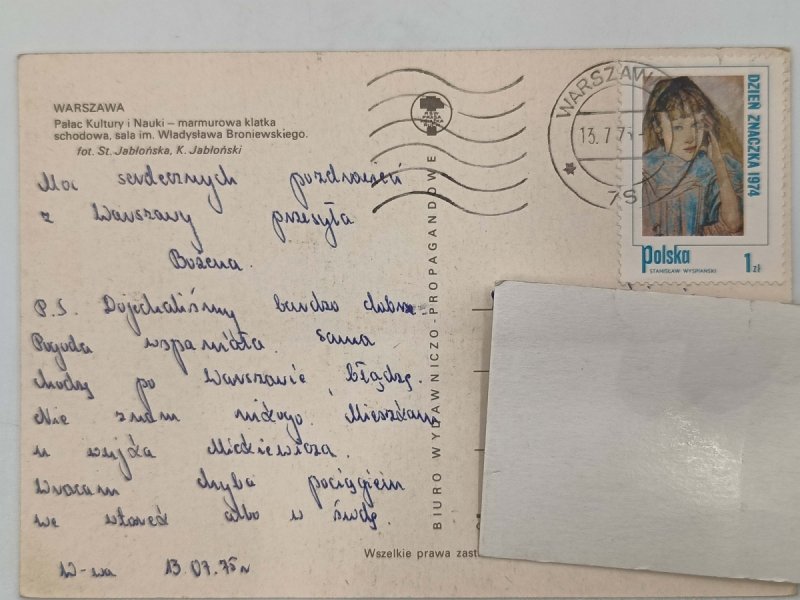 WARSZAWA
Pałac Kultury i Nauki – marmurowa klatka
schodowa, sala im. Władysława Broniewskiego.
fot. St. Jabłońska, K. Jabłoński
Moc serdecznych pozdrowień
z Warszawy przesyła
Bożena.
P.S. Dojechaliśmy bardzo dobrze
Pogoda wspaniała. Sama
chodzę po Warszawie i błądzę.
Nie znam nikogo. Mieszkam
u wujka Mickiewicza.
Wracam chyba pociągiem
we wtorek albo w środę.
W-wa 13.07.75 r
BIURO WYDAWNICZO-PROPAGANDOWE
Wszelkie prawa zast
WARSZAW
13.7.75
DZIEŃ ZNACZKA 1974
Polska 1 zł
STANISŁAW WYSPIAŃSKI